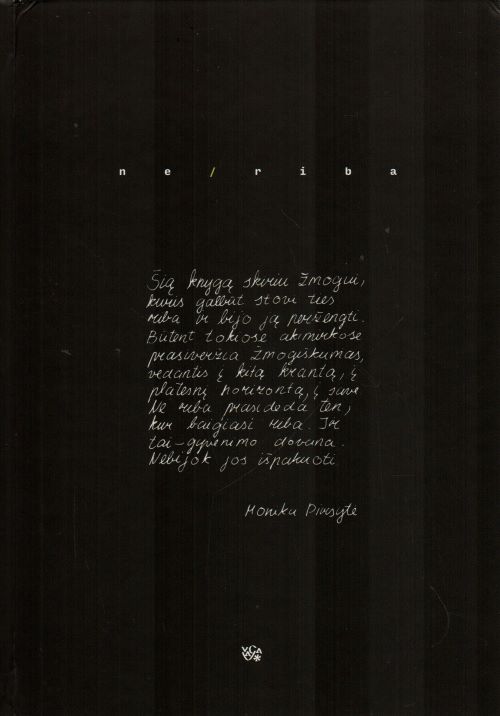 ne/riba
Šią knygą skiriu žmogui,
kuris galbūt stovi ties
riba ir bijo ją peržengti.
Būtent tokiose akimirkose
prasiveržia žmogiškumas,
vedantis į kitą krantą, į
platesnį horizontą, į save.
Ne riba prasideda ten,
kur baigiasi riba. Ir
tai-gyvenimo dovana.
Nebijok jos išpakuoti
Monika